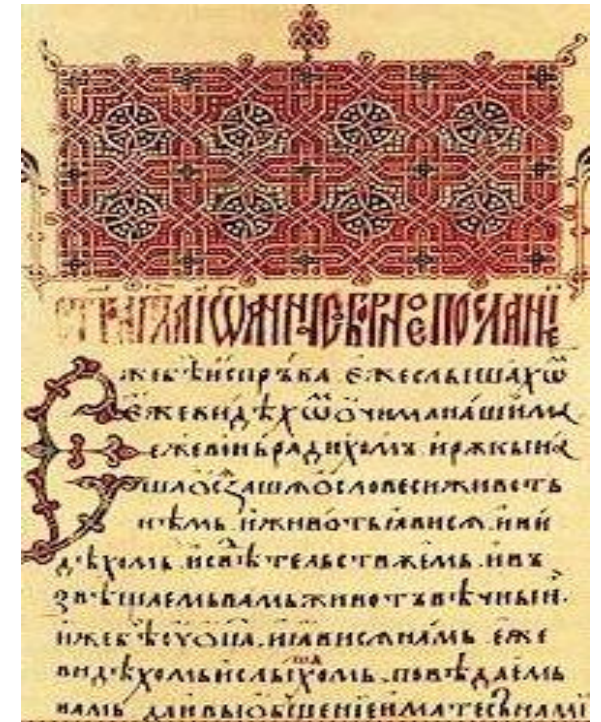 СТ҃ГѠ АПⷭ҇ЛА ІѠАННА СЪБОРНОЕ ПОСЛАНЇЕ
Еже бѣ испръва. еже слышахѡ
еже видѣхѡⷨ очима нашима
еже видѣ радихомъ. и рѫкы на
шѧ ѡсѧзашѧ ѡ словеси животь
нѣмь. и животь ꙗвисѧ. и ви
дѣхомь. и свѣтельствꙋемь. и въ
звѣщаемь вамь животъ вѣчныи.
иже бѣ ѹ ѡца. и ꙗвисѧ намь. еже
видѣхомь и слышахомь. повѣдаемь
вамь да и вы ѡбщенїе имате съ намї